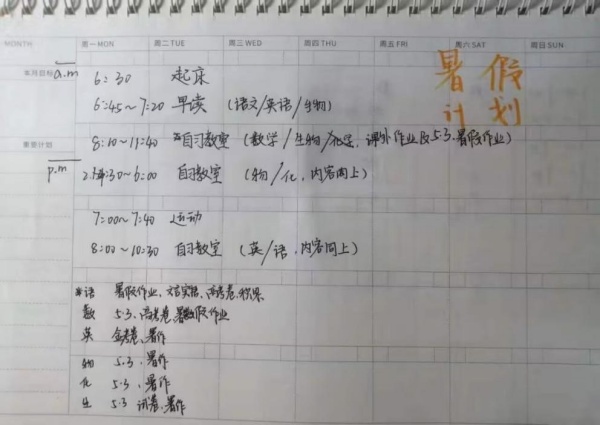 MONTH 周一MON 周二TUE 周三WED 周四THU 周五FRI 周六SAT 周日SUN
暑假
计划
本月目标
a.m
6:30 起床
6:45~7:20 早读 (语文/英语/生物)
8:10~11:40 自习教室 (数学/生物/化学, 课外作业及5.3、暑假作业)
重要计划
p.m
2:30~6:00 自习教室 (物/化, 内容同上)
7:00~7:40 运动
8:00~10:30 自习教室 (英/语, 内容同上)
*语 暑假作业、文言实词、高考卷、积累
数 5.3、高考卷、暑假作业
英 金考卷、暑作
物 5.3、暑作
化 5.3、暑作
生 5.3 试卷、暑作